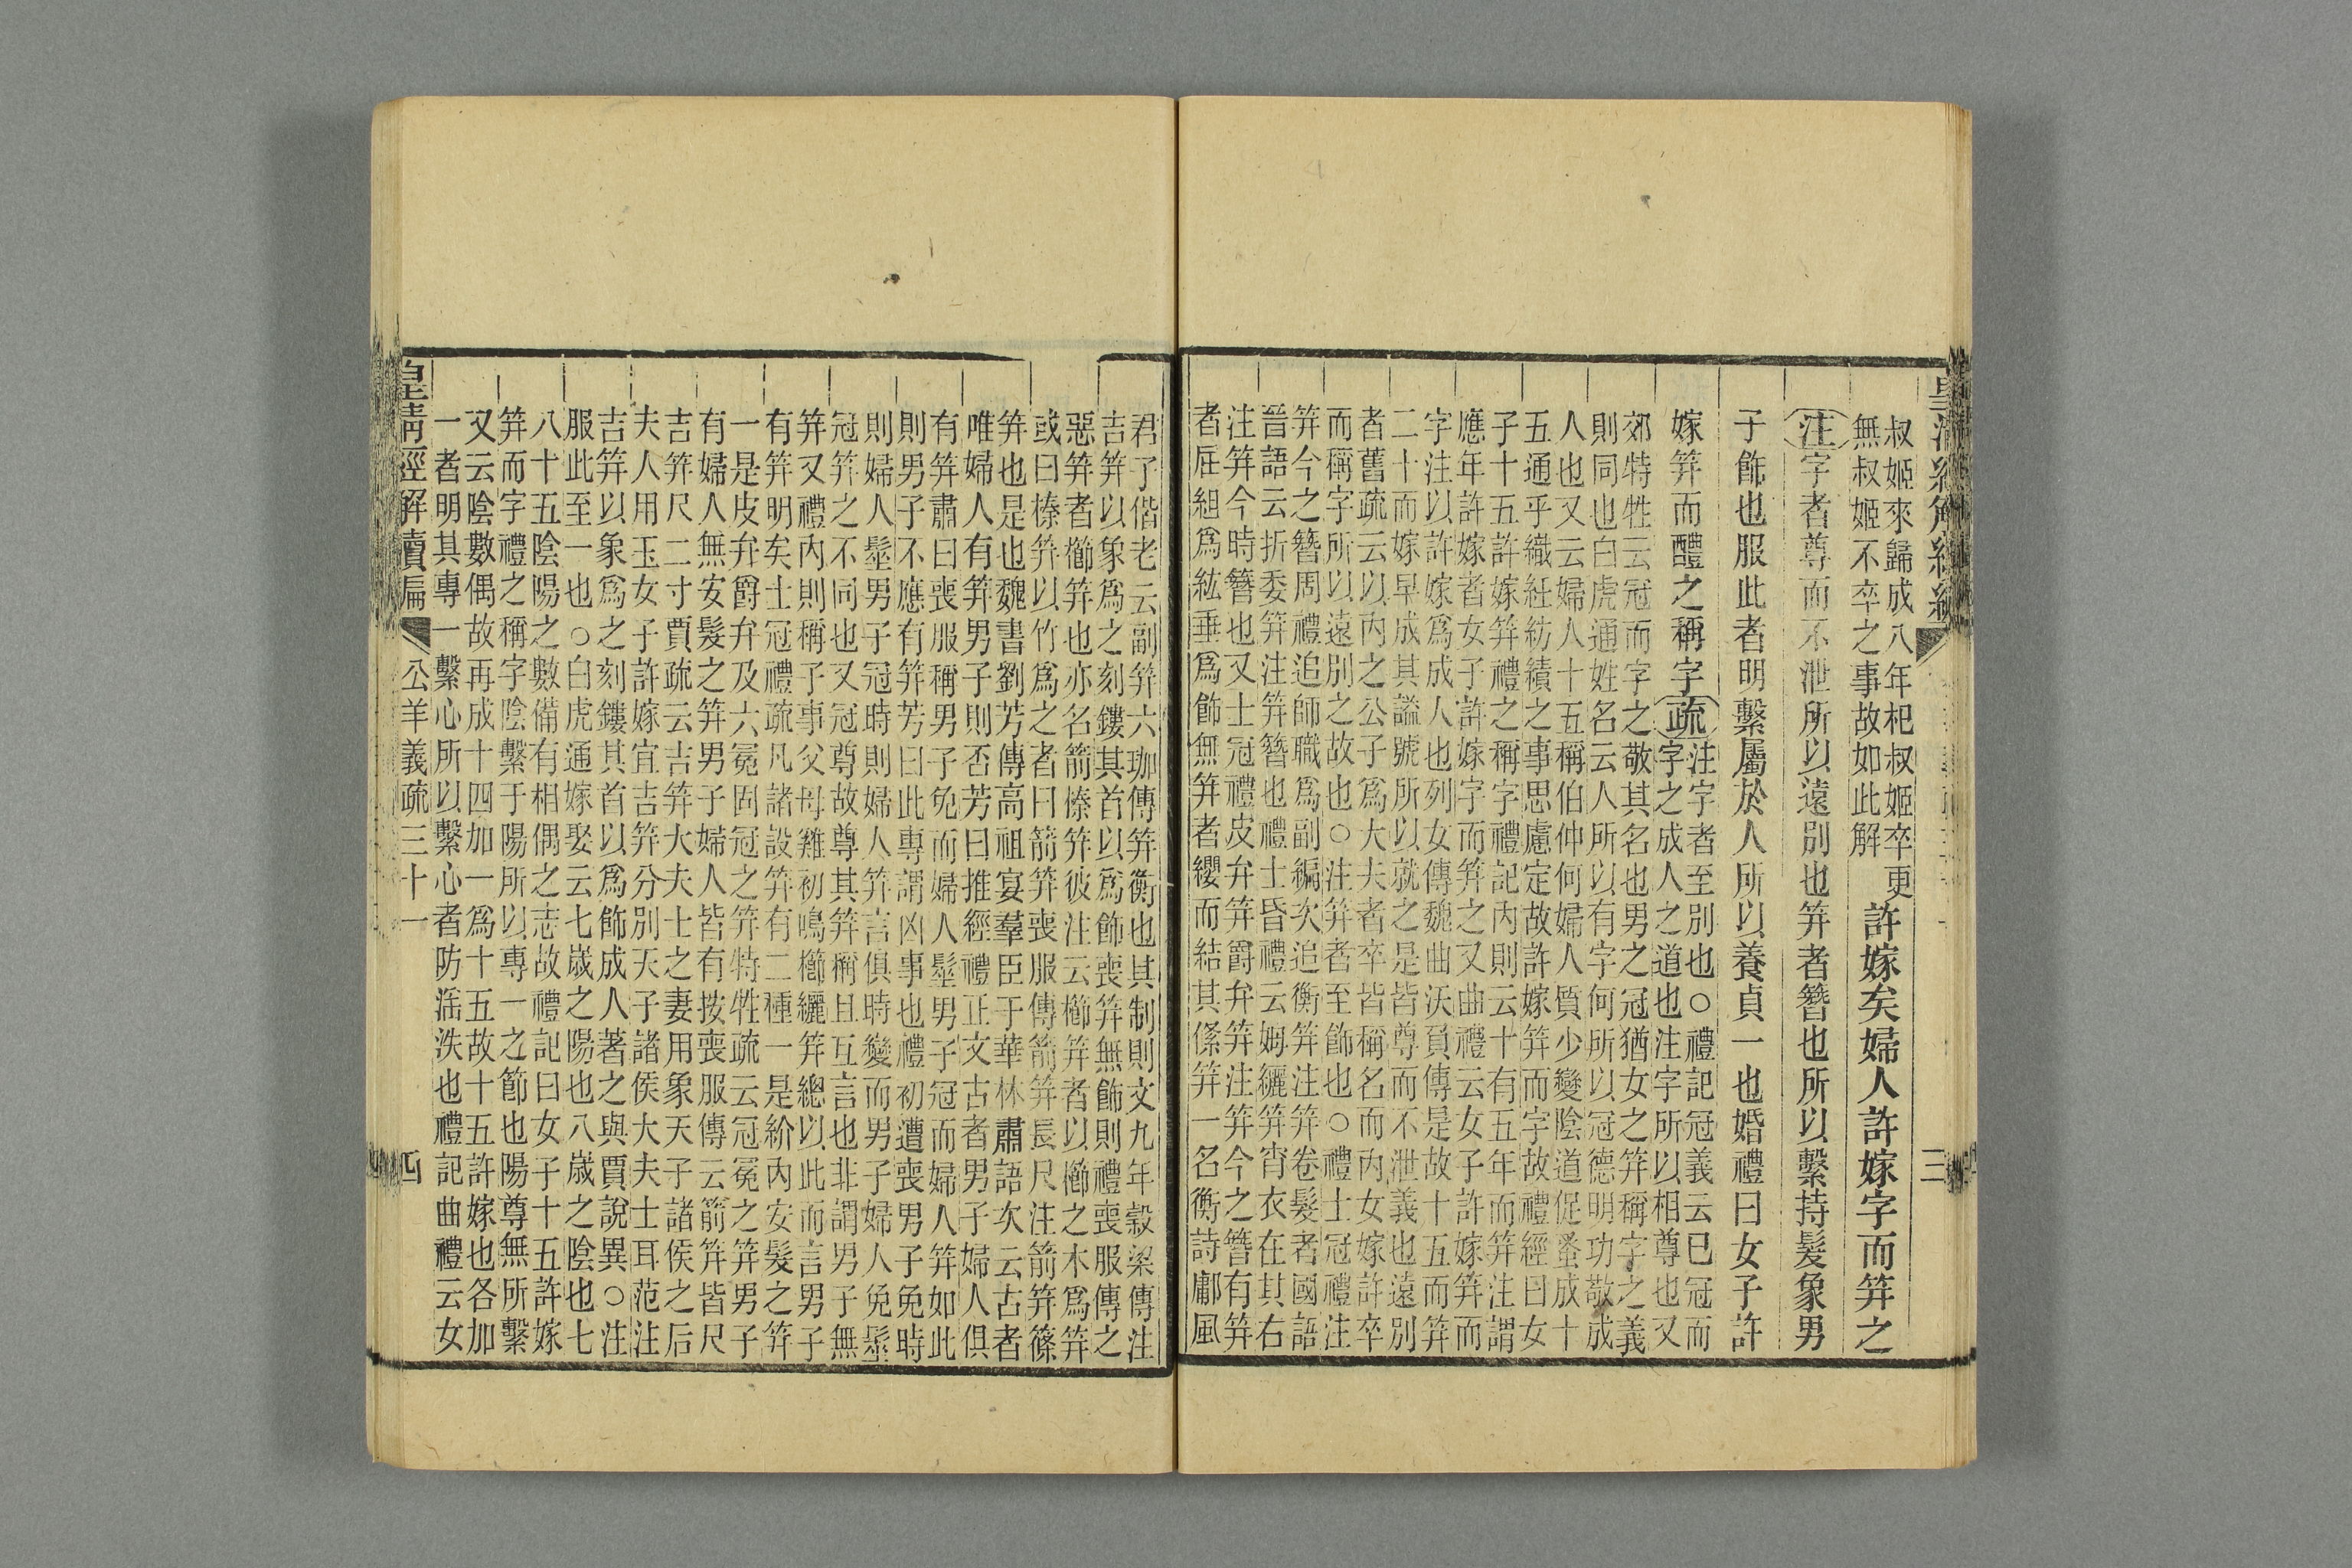 叔姬來歸成八年杞叔姬卒更
無叔姬不卒之事故如此解
許嫁矣婦人許嫁字而笄之
注字者尊而不泄所以遠別也笄者簪也所以繫持髮象男
子飾也服此者明繫屬於人所以養貞一也婚禮曰女子許
嫁笄而醴之稱字疏
注字者至別也○禮記冠義云已冠而
字之成人之道也注字所以相尊也又
郊特牲云冠而字之敬其名也男之冠猶女之笄稱字之義
則同也白虎通姓名云人所以有字何所以冠德明功敬成
人也又云婦人十五稱伯仲何婦人質少變陰道促蚤成十
五通乎織紝紡績之事思慮定故許嫁笄而字故禮經曰女
子十五許嫁笄禮之稱字禮記內則云十有五年而笄注謂
應年許嫁者女子許嫁字而笄之又曲禮云女子許嫁笄而
字注以許嫁爲成人也列女傳魏曲沃負傳是故十五而笄
二十而嫁早成其謚號所以就之是皆尊而不泄義也遠別
者舊疏云以內之公子爲大夫者卒皆稱名而內女嫁許卒
而稱字所以遠別之故也○注笄者至飾也○禮士冠禮注
笄今之簪周禮追師職爲副編次追衡笄注笄卷髮者國語
晉語云折委笄注笄簪也禮士昏禮云姆纚笄宵衣在其右
注笄今時簪也又士冠禮皮弁笄爵弁笄注笄今之簪有笄
者屈組爲紘垂爲飾無笄者纓而結其絛笄一名衡詩鄘風
君子偕老云副笄六珈傳笄衡也其制則文九年穀梁傳注
吉笄以象爲之刻鏤其首以爲飾喪笄無飾則禮喪服傳之
惡笄者櫛笄也亦名箭榛笄彼注云櫛笄者以櫛之木爲笄
或曰榛笄以竹爲之者曰箭笄喪服傳箭笄長尺注箭笄篠
笄也是也魏書劉芳傳高祖宴羣臣于華林肅語次云古者
唯婦人有笄男子則否芳曰推經禮正文古者男子婦人俱
有笄肅曰喪服稱男子免而婦人髽男子冠而婦人笄如此
則男子不應有笄芳曰此專謂凶事也禮初遭喪男子免時
則婦人髽男子冠時則婦人笄言俱時變而男子婦人免髽
冠笄之不同也又冠尊故尊其笄稱且互言也非謂男子無
笄又禮內則稱子事父母雞初鳴櫛纚笄總以此而言男子
有笄明矣士冠禮疏凡諸設笄有二種一是紒內安髮之笄
一是皮弁爵弁及六冕固冠之笄特牲疏云冠冕之笄男子
有婦人無安髮之笄男子婦人皆有按喪服傳云箭笄皆尺
吉笄尺二寸賈疏云吉笄大夫士之妻用象天子諸侯之后
夫人用玉女子許嫁宜吉笄分別天子諸侯大夫士耳范注
吉笄以象爲之刻鏤其首以爲飾成人著之與賈說異○注
服此至一也○白虎通嫁娶云七歲之陽也八歲之陰也七
八十五陰陽之數備有相偶之志故禮記曰女子十五許嫁
笄而字禮之稱字陰繫于陽所以專一之節也陽尊無所繫
又云陰數偶故再成十四加一爲十五故十五許嫁也各加
一者明其專一繫心所以繫心者防淫泆也禮記曲禮云女
皇淸經解續編
公羊義疏三十一
四